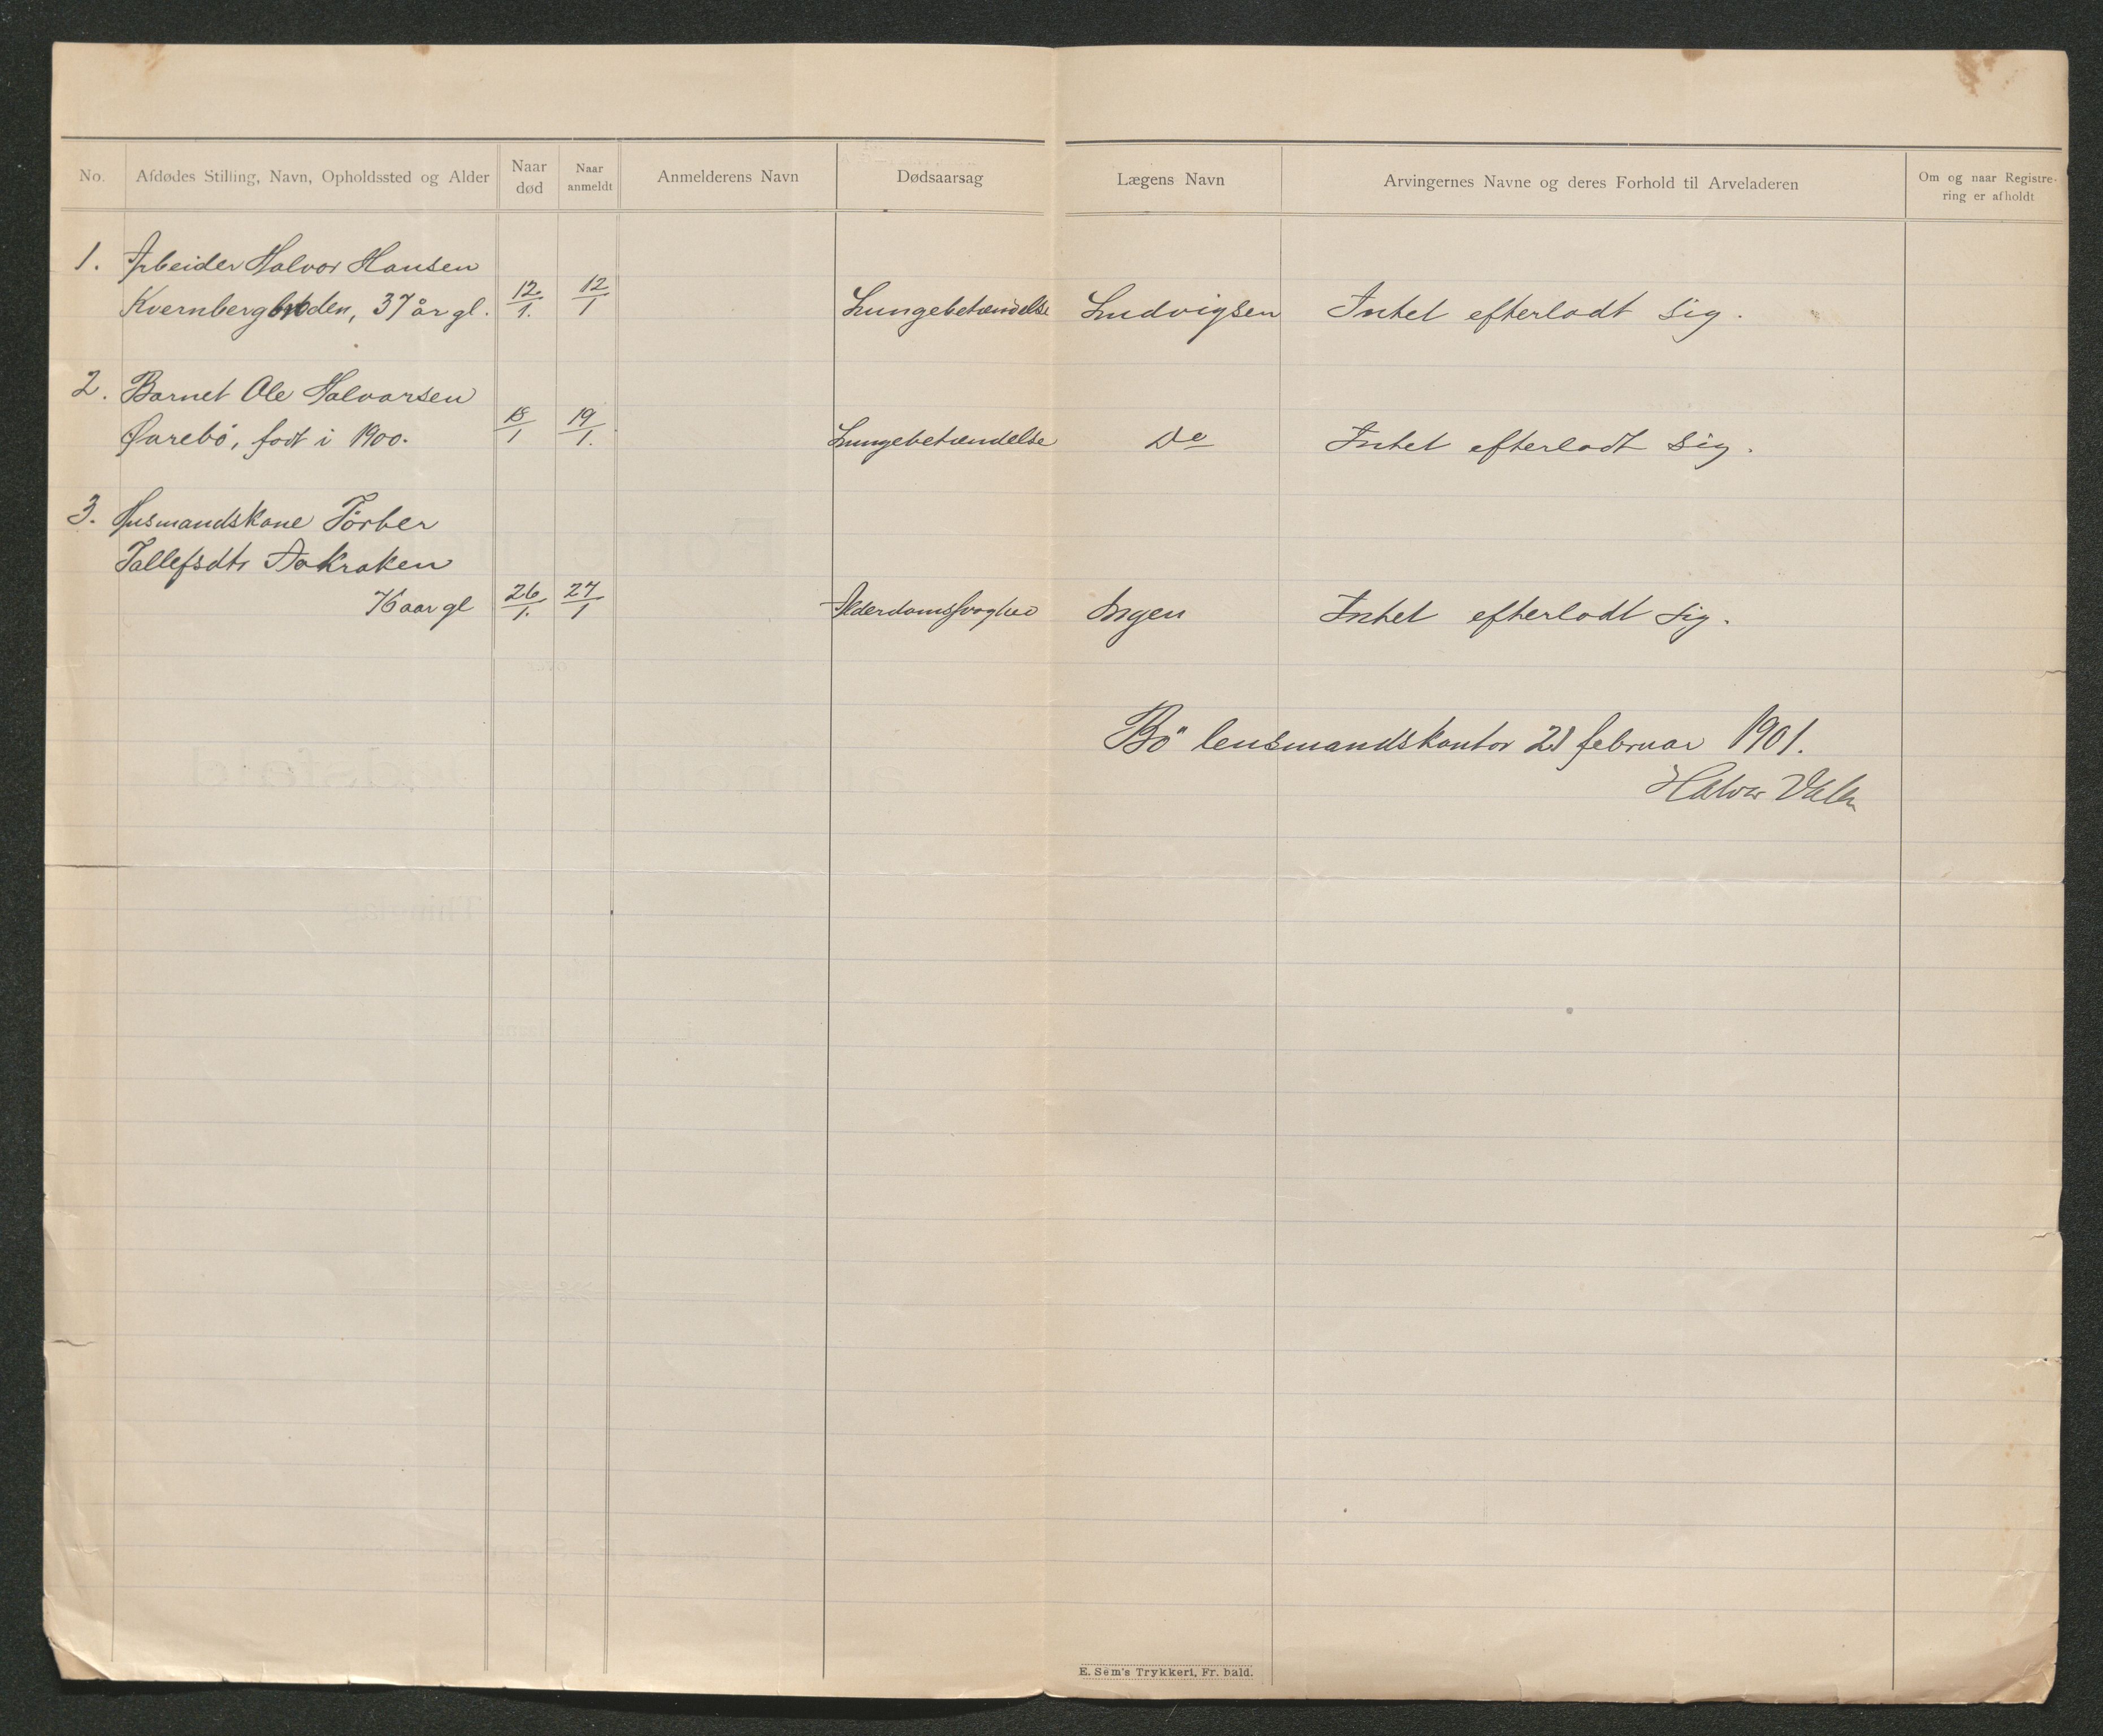 No. Afdødes Stilling, Navn, Opholdssted og Alder Naar død Naar anmeldt Anmelderens Navn Dødsaarsag Lægens Navn Arvingernes Navne og deres Forhold til Arveladeren Om og naar Registrering er afholdt
1. Arbeider Halvor Hansen
Kvernbergboden, 37 år gl. 12/1. 12/1 Lungebetændelse Ludvigsen Intet efterladt sig.
2. Barnet Ole Halvorsen
Øvrebö, født i 1900. 18/1 19/1. Lungebetændelse Do Intet efterladt sig.
3. Husmandskone Törber
Tallefsdtr Aakraken
76 aar gl 26/1. 27/1 Alderdomssvaghed Ingen Intet efterladt sig.
Bö lensmandskontor 21 februar 1901.
Halvor Valen
E. Sem's Trykkeri, Fr. hald.